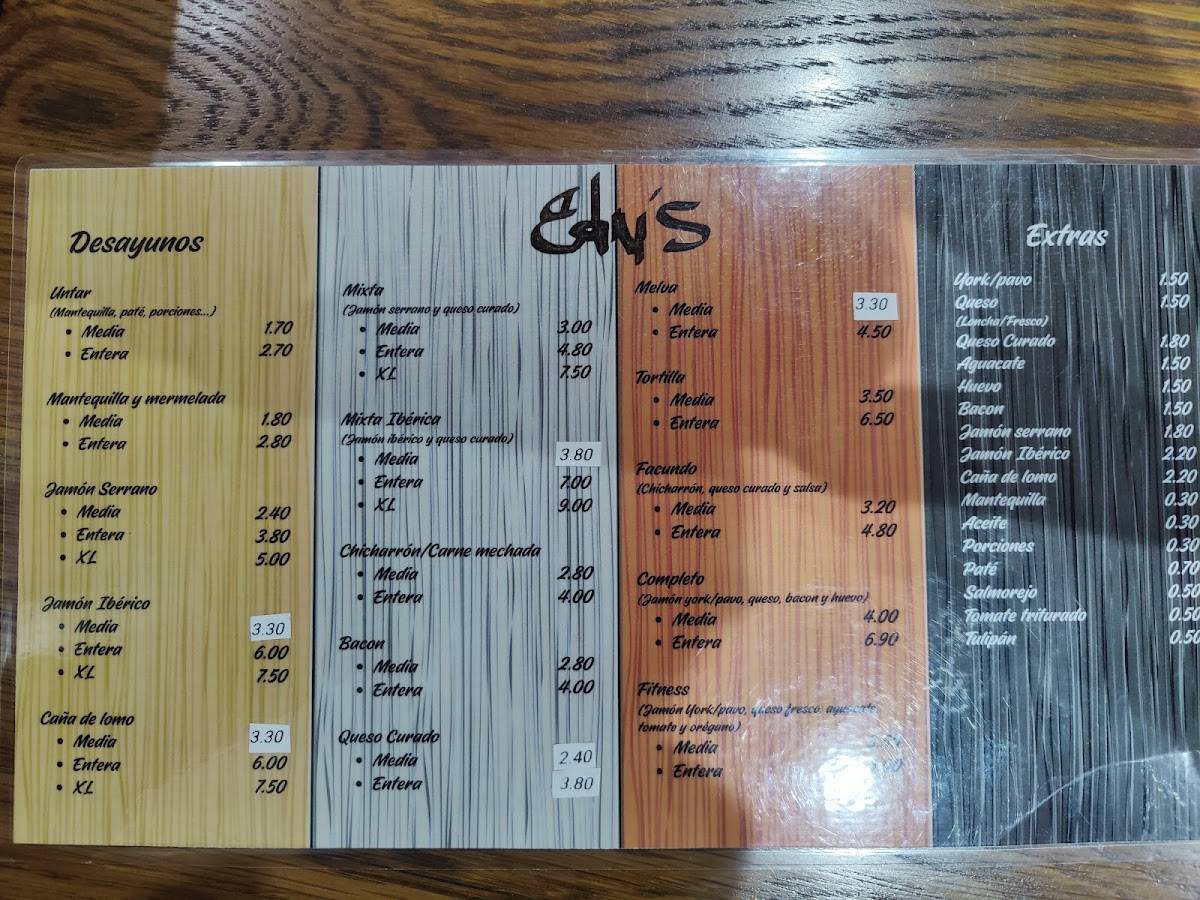 Edy's
Desayunos
Untar
(Mantequilla, paté, porciones...)
• Media 1.70
• Entera 2.70
Mantequilla y mermelada
• Media 1.80
• Entera 2.80
Jamón Serrano
• Media 2.40
• Entera 3.80
• XL 5.00
Jamón Ibérico
• Media 3.30
• Entera 6.00
• XL 7.50
Caña de lomo
• Media 3.30
• Entera 6.00
• XL 7.50
Mixta
(Jamón serrano y queso curado)
• Media 3.00
• Entera 4.80
• XL 7.50
Mixta Ibérica
(Jamón ibérico y queso curado)
• Media 3.80
• Entera 7.00
• XL 9.00
Chicharrón/Carne mechada
• Media 2.80
• Entera 4.00
Bacon
• Media 2.80
• Entera 4.00
Queso Curado
• Media 2.40
• Entera 3.80
Melva
• Media 3.30
• Entera 4.50
Tortilla
• Media 3.50
• Entera 6.50
Facundo
(Chicharrón, queso curado y salsa)
• Media 3.20
• Entera 4.80
Completo
(Jamón york/pavo, queso, bacon y huevo)
• Media 4.00
• Entera 6.90
Fitness
(Jamón York/pavo, queso fresco, aguacate,
tomate y orégano)
• Media
• Entera
Extras
York/pavo 1.50
Queso 1.50
(Loncha/Fresco)
Queso Curado 1.80
Aguacate 1.50
Huevo 1.50
Bacon 1.50
Jamón serrano 1.80
Jamón Ibérico 2.20
Caña de lomo 2.20
Mantequilla 0.30
Aceite 0.30
Porciones 0.30
Paté 0.70
Salmorejo 0.50
Tomate triturado 0.50
Tulipán 0.50